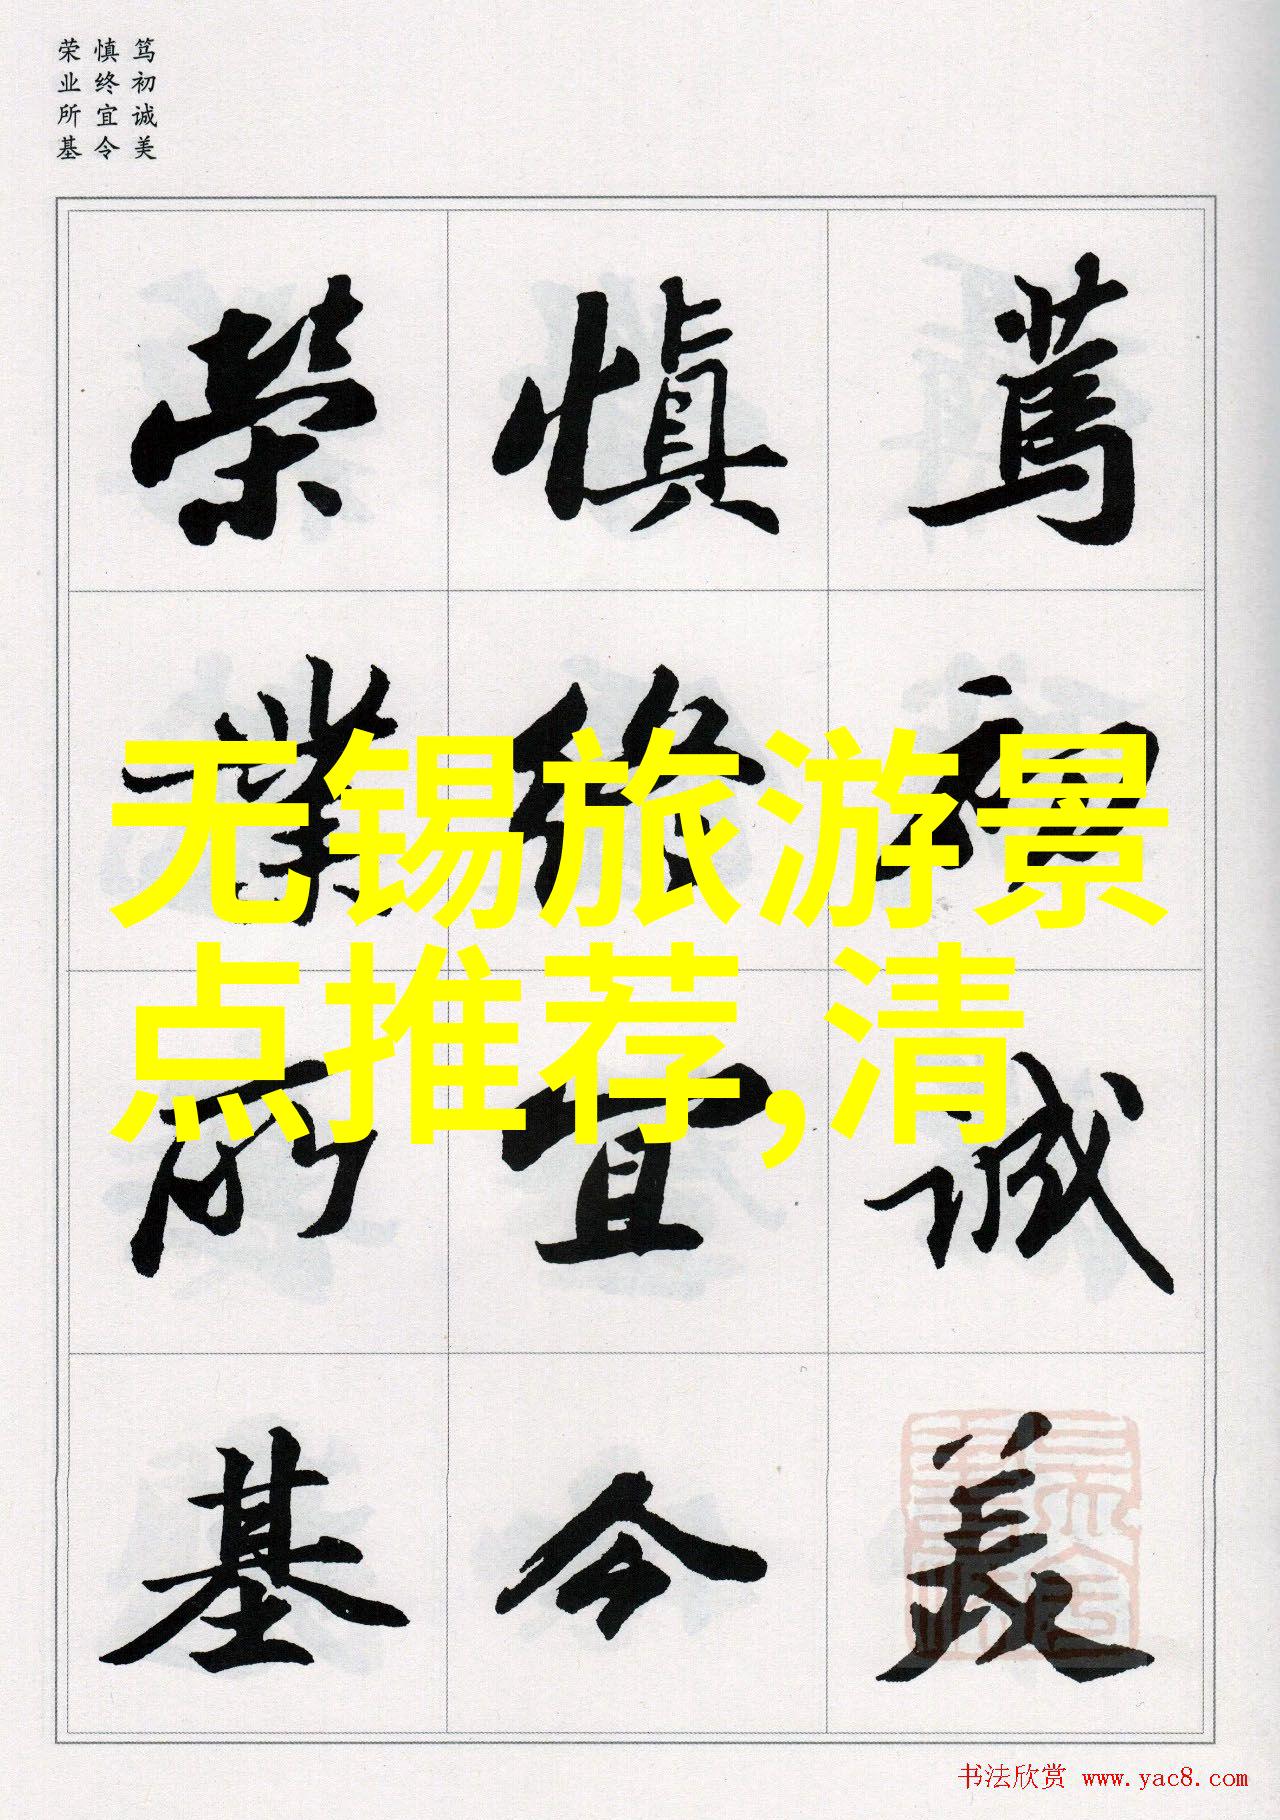 笃初诚美
慎终宜令
荣业所基
篤初誠美
慎終宜令
榮業所基
无锡旅游景
点推荐,清
书法欣赏 www.yac8.com